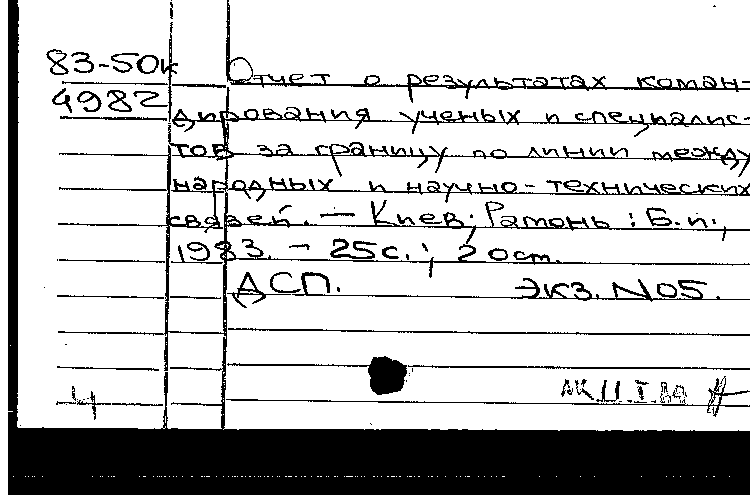 83-50к
4982
Отчет о результатах коман-
дирования ученых и специалис-
тов за границу по линии между
народных и научно-технических
связей. - Киев; Рамонь: Б.и.,
1983. - 25с.; 20 от.
ДСП. Экз. №05.
4 АК 11.I.84